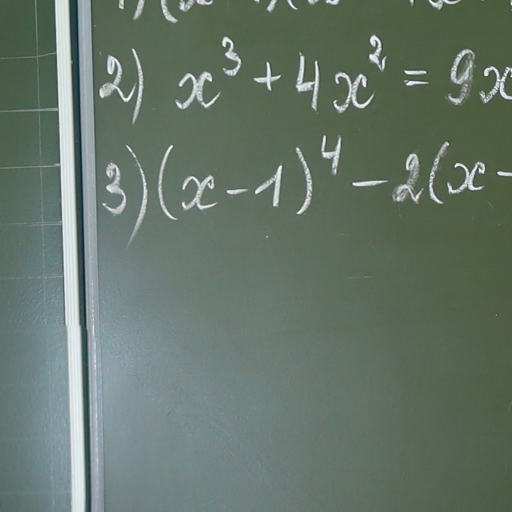 2) x³ + 4x² = 9x
3) (x - 1)⁴ - 2(x -